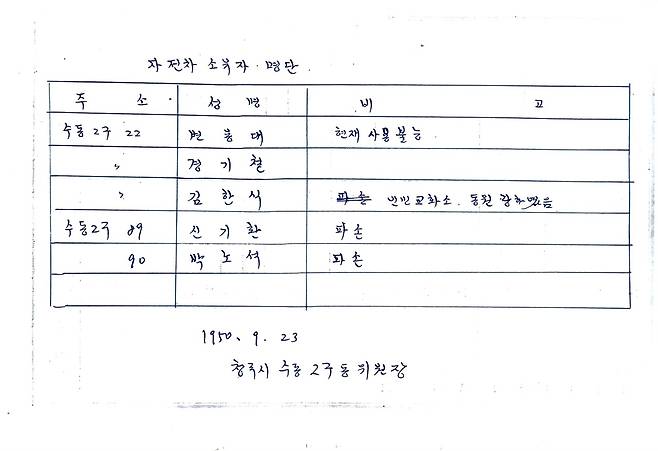 자전차 소유자 명단
주 소 성 명 비 고
수동 2구 22 변 봉 대 현재 사용불능
〃 경 기 철
〃 김 한 식 파손 인민교화소. 동원 당하였음
수동2구 89 신 기 환 파손
90 박 노 석 파손
1950. 9. 23
청주시 수동 2구 동위원장